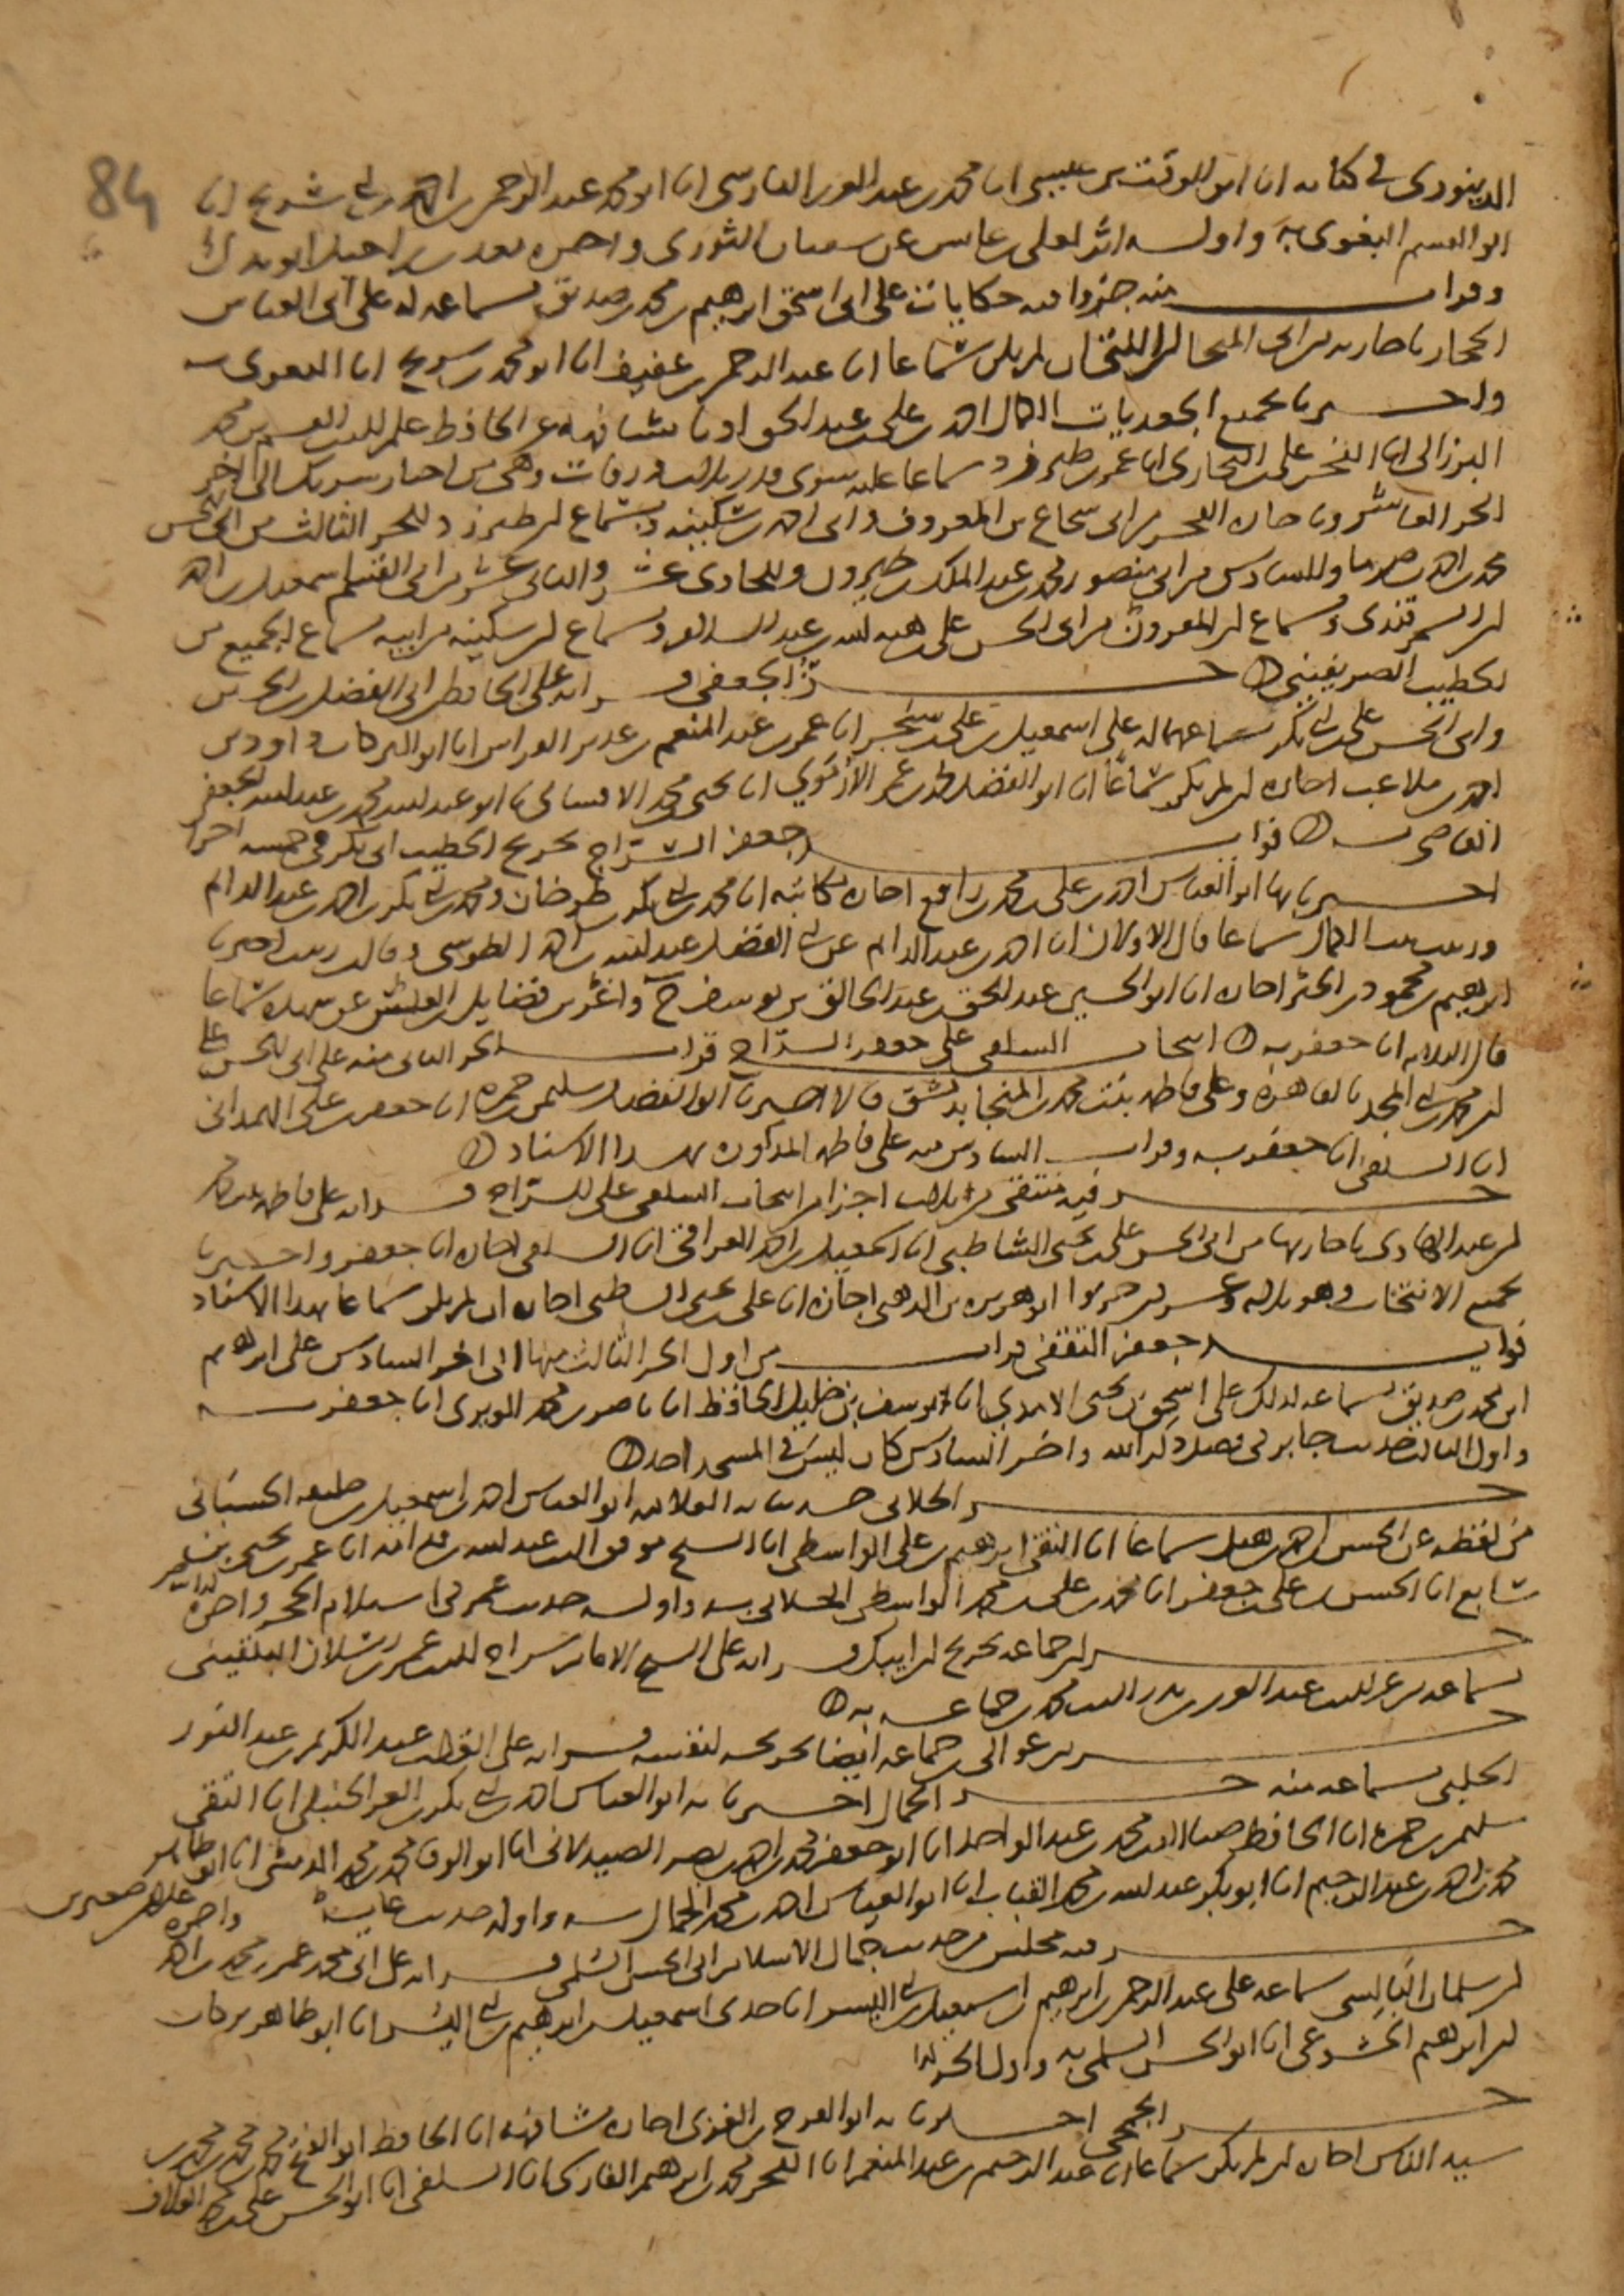 84
الدينوري في كتابه انا ابو الوقت بن عيسى انا محمد بن عبد العزيز الفارسي انا ابو محمد عبد الرحمن بن احمد بن ابي شريح انا
ابو القسم البغوي به واوله اثر لعلي بن عابس عن سفيان الثوري واخره
وقرات منه جزءا فيه حكايات على ابي اسحق ابرهيم بن محمد بن صديق بسماعه له على ابي العباس
الحجار باجازته من ابن المنجا ابن اللتي ان لم يكن سماعا انا عبد الرحمن بن عفيف انا ابو محمد بن ابي شريح انا البغوي به
واخبرنا بجميع الجعديات الكمال احمد بن علي بن عبد الحق اذنا مشافهة عن الحافظ علم الدين القسم بن محمد
البرزالي انا الفخر علي بن البخاري انا عمر بن طبرزد سماعا عليه سوى وهي من اخبار شريك الى اخر
الجزء العاشر وباجازة الفخر من ابي شجاع بن المعروف وابي احمد بن سكينة وبسماع ابن طبرزد للجزء الثالث من ابي الحسن
محمد بن احمد بن صرما وللسادس من ابي منصور محمد بن عبد الملك بن خيرون وللحادي عشر والثاني عشر من ابي القسم اسمعيل بن احمد
ابن السمرقندي وسماع ابن المعروف من ابي الحسن علي بن هبة الله بن عبد السلام وسماع ابن سكينة من ابيه بسماع الجميع من
الخطيب الصريفيني
جزء الجعفي قراته على الحافظ ابي الفضل بن الحسين
وابي الحسن علي بن ابي بكر بسماعهما له على اسمعيل بن علي بن سنجر انا عمر بن عبد المنعم بن غدير القواس انا ابو البركات داود بن
احمد بن ملاعب اجازة ان لم يكن سماعا انا ابو الفضل محمد بن عمر الارموي انا محمد بن محمد الاقساسي نا ابو عبد الله محمد بن عبد الله الجعفي
القاضي به
فوائد جعفر السراج تخريج الخطيب ابي بكر في خمسة اجزاء
اخبرنا بها ابو العباس احمد بن علي بن محمد بن رافع اجازة مكاتبة انا محمد بن ابي بكر بن طرخان ومحمد بن ابي بكر بن احمد بن عبد الدائم
وزينب بنت الكمال سماعا قال الاولان انا احمد بن عبد الدائم عن ابي الفضل عبد الله بن احمد الطوسي وقالت زينب اخبرنا
ابرهيم بن محمود بن الخير اجازة انا ابو الحسين عبد الحق بن عبد الخالق بن يوسف ح وعن شهدة سماعا
قال الثلاثة انا جعفر به
انتخاب السلفي على جعفر السراج قرات الجزء الثاني منه على ابي الحسن علي
ابن محمد بن ابي المجد بالقاهرة وعلى فاطمة بنت محمد بن المنجا بدمشق قالا اخبرنا ابو الفضل سليمن بن حمزة انا جعفر بن علي الهمداني
انا السلفي انا جعفر به وقرات السادس منه على فاطمة المذكورة بهذا الاسناد
جزء فيه منتقى من ثلاثة اجزاء من انتخاب السلفي على السراج قراته على فاطمة بنت محمد
ابن عبد الهادي باجازتها من ابي الحسن علي بن يحيى الشاطبي انا اسمعيل بن احمد العراقي انا السلفي اجازة انا جعفر واخبرنا
بجميع الانتخاب وهو ثلاثة وعشرون جزءا ابو هريرة بن الذهبي اجازة انا علي بن يحيى الشاطبي اجازة ان لم يكن سماعا بهذا الاسناد
فوائد جعفر الثقفي قرات من اول الجزء الثالث منها الى اخر السادس على ابرهيم
ابن محمد بن صديق بسماعه لذلك على اسحق بن يحيى الامدي انا يوسف بن خليل الحافظ انا ناصر بن محمد الويري انا جعفر به
واول الثالث حديث جابر في فضل ذكر الله واخر السادس كان ليس في المسجد احد
جزء الجلابي حدثنا به العلامة ابو العباس احمد بن اسمعيل بن خليفة الحسباني
من لفظه عن الحسن بن احمد بن هلال سماعا انا التقي ابرهيم بن علي الواسطي انا الشيخ موفق الدين عبد الله بن قدامة انا عمر بن يحيى بن
شافع انا الحسن بن علي بن جعفر انا محمد بن علي بن محمد الواسطي الجلابي به واوله حديث عمر في استلام الحجر واخره
جزء ابن جماعة تخريج ابن ايبك قراته على الشيخ الامام سراج الدين عمر بن رسلان البلقيني
بسماعه من عز الدين عبد العزيز بن بدر الدين محمد بن جماعة به
جزء من عوالي ابن جماعة ايضا تخريجه لنفسه قراته على القطب عبد الكريم بن عبد النور
الحلبي بسماعه منه
جزء الجمال اخبرنا به ابو العباس احمد بن ابي بكر بن العز الحنبلي انا التقي
سليمن بن حمزة انا الحافظ ضيا الدين محمد بن عبد الواحد انا ابو جعفر محمد بن احمد بن نصر الصيدلاني انا ابو الوفا محمد بن محمد المديني انا ابو طاهر
محمد بن احمد بن عبد الرحيم انا ابو بكر عبد الله بن محمد القباب انا ابو العباس احمد بن محمد الجمال به واوله حديث عايشة واخره
جزء فيه مجلس من حديث جمال الاسلام ابي الحسن السلمي قراته على ابي محمد عمر بن محمد بن احمد
ابن سلمان البالسي بسماعه على عبد الرحمن بن ابرهيم بن اسمعيل بن ابي اليسر انا جدي اسمعيل بن ابرهيم بن ابي اليسر انا ابو طاهر بركات
ابن ابرهيم الخشوعي انا ابو الحسن السلمي به واول الجزء
جزء الجمحي اخبرنا به ابو الفرج بن الغزي اجازة مشافهة انا الحافظ ابو الفتح محمد بن محمد بن
سيد الناس اجازة ان لم يكن سماعا انا عبد الرحيم بن عبد المنعم انا الفخر محمد بن ابرهيم الفارسي انا السلفي انا ابو الحسن علي بن محمد العلاف